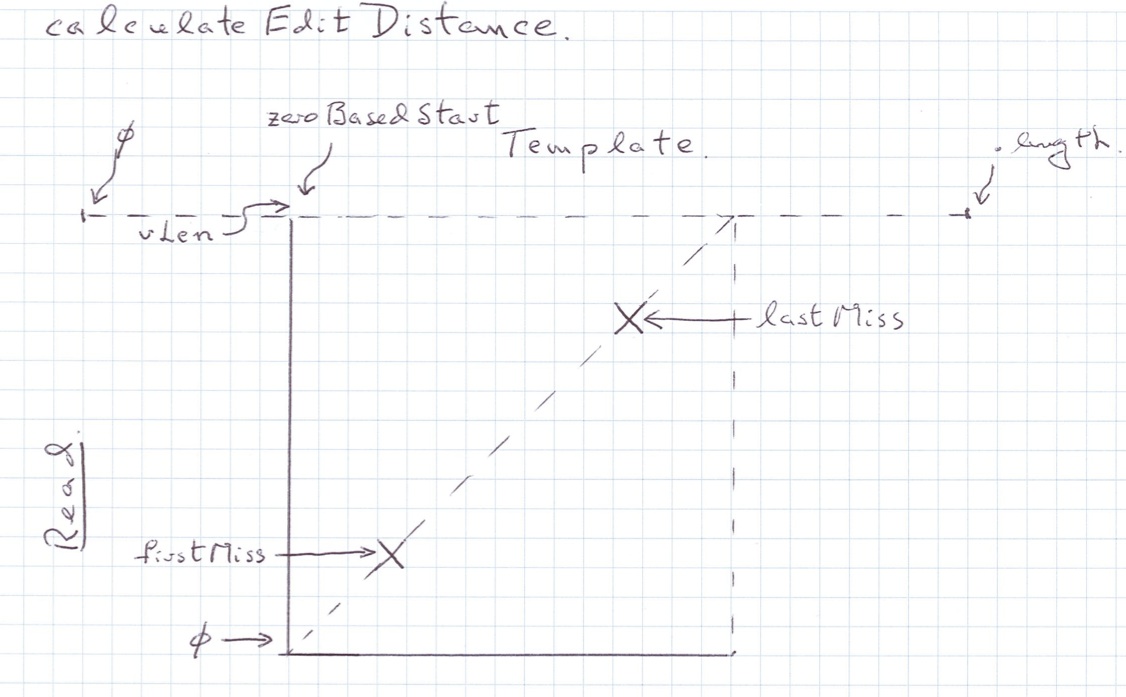 calculate Edit Distance.
zeroBasedStart
ϕ
Template.
.length.
vLen
lastMiss
Read.
firstMiss
ϕ